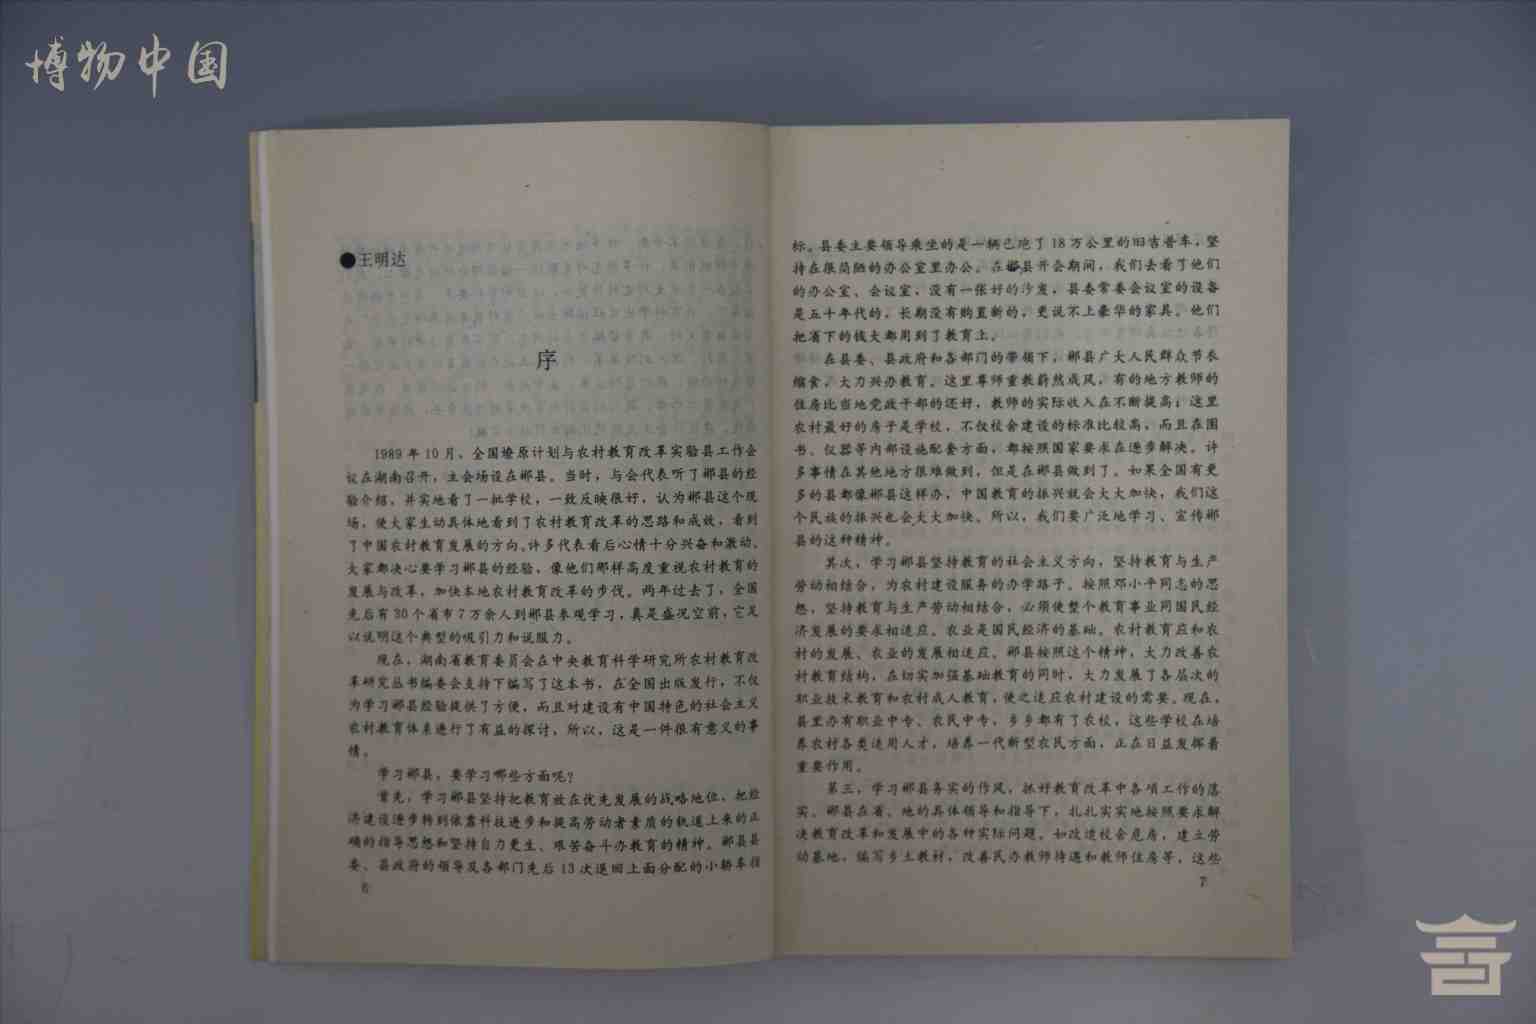 博物中国
●王明达
序
1989年10月，全国燎原计划与农村教育改革实验县工作会
议在湖南召开，主会场设在郴县。当时，与会代表听了郴县的经
验介绍，并实地看了一批学校，一致反映很好，认为郴县这个现
场，使大家生动具体地看到了农村教育改革的思路和成效，看到
了中国农村教育发展的方向。许多代表看后心情十分兴奋和激动。
大家都决心要学习郴县的经验，像他们那样高度重视农村教育的
发展与改革，加快本地农村教育改革的步伐。两年过去了，全国
先后有30个省市7万余人到郴县参观学习，真是盛况空前，它足
以说明这个典型的吸引力和说服力。
现在，湖南省教育委员会在中央教育科学研究所农村教育改
革研究丛书编委会支持下编写了这本书，在全国出版发行，不仅
为学习郴县经验提供了方便，而且对建设有中国特色的社会主义
农村教育体系进行了有益的探讨，所以，这是一件很有意义的事
情。
学习郴县，要学习哪些方面呢？
首先，学习郴县坚持把教育放在优先发展的战略地位，把经
济建设逐步转到依靠科技进步和提高劳动者素质的轨道上来的正
确的指导思想和坚持自力更生、艰苦奋斗办教育的精神。郴县县
委、县政府的领导及各部门先后13次退回上面分配的小轿车指
6
标。县委主要领导乘坐的是一辆已跑了18万公里的旧吉普车，坚
持在很简陋的办公室里办公。在郴县开会期间，我们去看了他们
的办公室、会议室，没有一张好的沙发，县委常委会议室的设备
是五十年代的，长期没有购置新的，更说不上豪华的家具。他们
把省下的钱大都用到了教育上。
在县委、县政府和各部门的带领下，郴县广大人民群众节衣
缩食，大力兴办教育。这里尊师重教蔚然成风，有的地方教师的
住房比当地党政干部的还好，教师的实际收入在不断提高；这里
农村最好的房子是学校，不仅校舍建设的标准比较高，而且在图
书、仪器等内部设施配套方面，都按照国家要求在逐步解决。许
多事情在其他地方很难做到，但是在郴县做到了。如果全国有更
多的县都像郴县这样办，中国教育的振兴就会大大加快，我们这
个民族的振兴也会大大加快。所以，我们要广泛地学习、宣传郴
县的这种精神。
其次，学习郴县坚持教育的社会主义方向，坚持教育与生产
劳动相结合，为农村建设服务的办学路子。按照邓小平同志的思
想，坚持教育与生产劳动相结合，必须使整个教育事业同国民经
济发展的要求相适应。农业是国民经济的基础。农村教育应和农
村的发展、农业的发展相适应。郴县按照这个精神，大力改善农
村教育结构，在切实加强基础教育的同时，大力发展了各层次的
职业技术教育和农村成人教育，使之适应农村建设的需要。现在，
县里办有职业中专、农民中专，乡乡都有了农校，这些学校在培
养农村各类适用人才，培养一代新型农民方面，正在日益发挥着
重要作用。
第三，学习郴县务实的作风，抓好教育改革中各项工作的落
实。郴县在省、地的具体领导和指导下，扎扎实实地按照要求解
决教育改革和发展中的各种实际问题。如改造校舍危房，建立劳
动基地，编写乡土教材，改善民办教师待遇和教师住房等，这些
7